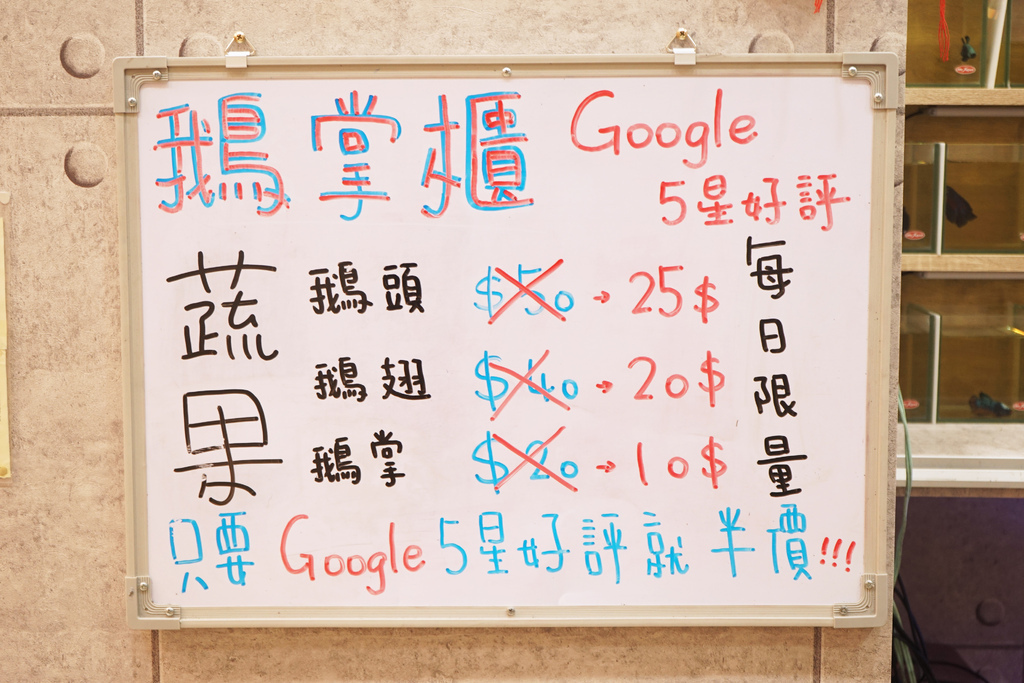 鵝掌櫃 Google
5星好評
蔬果
鵝頭 $50 → 25$
鵝翅 $40 → 20$
鵝掌 $20 → 10$
每日限量
只要 Google 5星好評就半價!!!